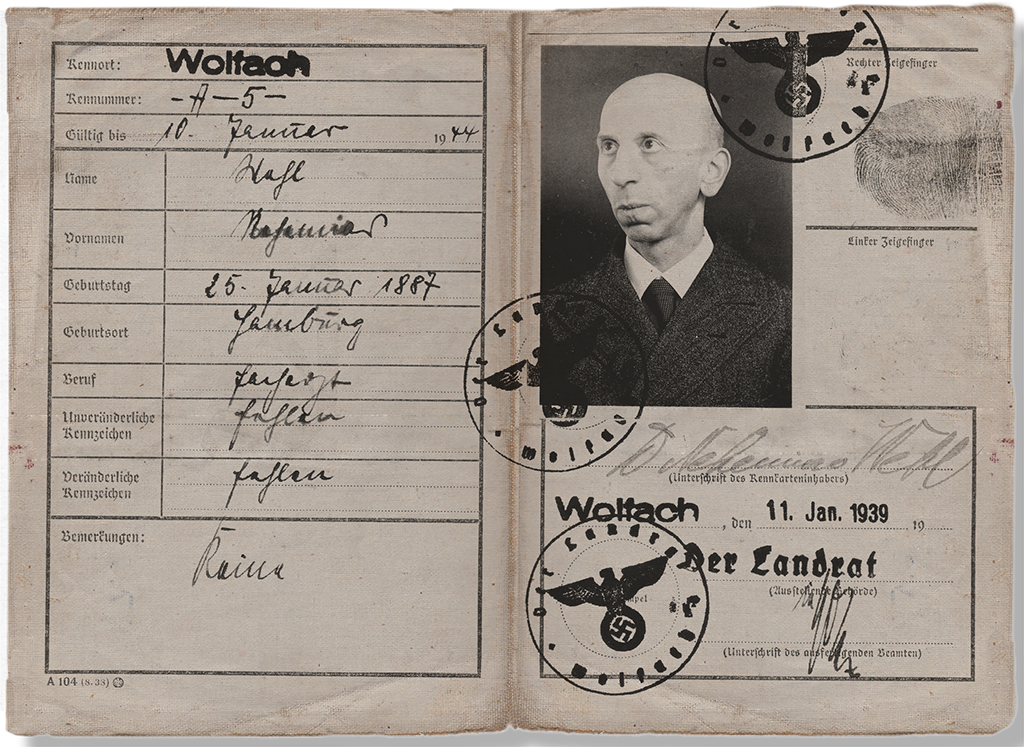 Kennort: Wolfach
Kennummer: -A-5-
Gültig bis 10. Januar 1944
Name Wahl
Vornamen Nehemias
Geburtstag 25. Januar 1887
Geburtsort Hamburg
Beruf Facharzt
Unveränderliche Kennzeichen fehlen
Veränderliche Kennzeichen fehlen
Bemerkungen: Keine
A 104 (8.38)
Der Landrat Wolfach
Rechter Zeigefinger
Linker Zeigefinger
Der Landrat Wolfach
Dr Nehemias Wahl
(Unterschrift des Kennkarteninhabers)
Wolfach, den 11. Jan. 1939 19
Der Landrat
(Ausstellende Behörde)
Der Landrat Wolfach
(Unterschrift des ausfertigenden Beamten)